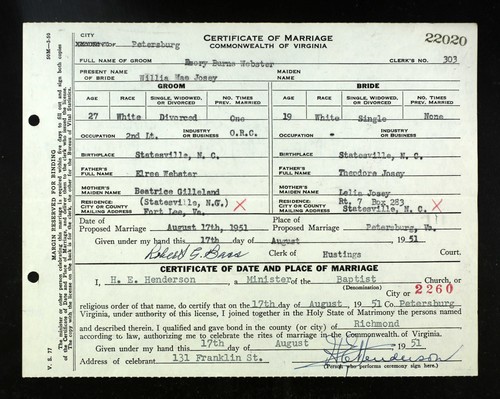 CERTIFICATE OF MARRIAGE
COMMONWEALTH OF VIRGINIA
22020
CITY
OF Petersburg
FULL NAME OF GROOM Emory Burns Webster CLERK'S NO. 303
PRESENT NAME OF BRIDE Willia Mae Josey MAIDEN NAME
GROOM BRIDE
AGE RACE SINGLE, WIDOWED, OR DIVORCED NO. TIMES PREV. MARRIED AGE RACE SINGLE, WIDOWED, OR DIVORCED NO. TIMES PREV. MARRIED
27 White Divorced One 19 White Single None
OCCUPATION 2nd Lt. INDUSTRY OR BUSINESS O.R.C. OCCUPATION - INDUSTRY OR BUSINESS
BIRTHPLACE Statesville, N. C. BIRTHPLACE Statesville, N. C.
FATHER'S FULL NAME Elree Webster FATHER'S FULL NAME Theodore Josey
MOTHER'S MAIDEN NAME Beatrice Gilleland MOTHER'S MAIDEN NAME Lelia Josey
RESIDENCE: CITY OR COUNTY MAILING ADDRESS (Statesville, N.C.) X Fort Lee, Va. RESIDENCE: CITY OR COUNTY MAILING ADDRESS Rt. 7 Box 283 Statesville, N.C. X
Date of Proposed Marriage August 17th, 1951 Place of Proposed Marriage Petersburg, Va.
Given under my hand this 17th day of August 1951
Robert G. Bass Clerk of Hustings
CERTIFICATE OF DATE AND PLACE OF MARRIAGE
I, H. E. Henderson a Minister of the Baptist Church, or
(Denomination) City or 2260
religious order of that name, do certify that on the 17th day of August, 1951 Co. Petersburg
Virginia, under authority of this license, I joined together in the Holy State of Matrimony the persons named
and described therein. I qualified and gave bond in the county (or city) of Richmond
according to law, authorizing me to celebrate the rites of marriage in the Commonwealth of Virginia.
Given under my hand this 17th day of August 1951
Address of celebrant 131 Franklin St. H E Henderson
(Person who performs ceremony sign here.)
50M—3-50
V. S. 77
MARGIN RESERVED FOR BINDING
The minister or other person celebrating this marriage is required within five days to fill out and sign both copies